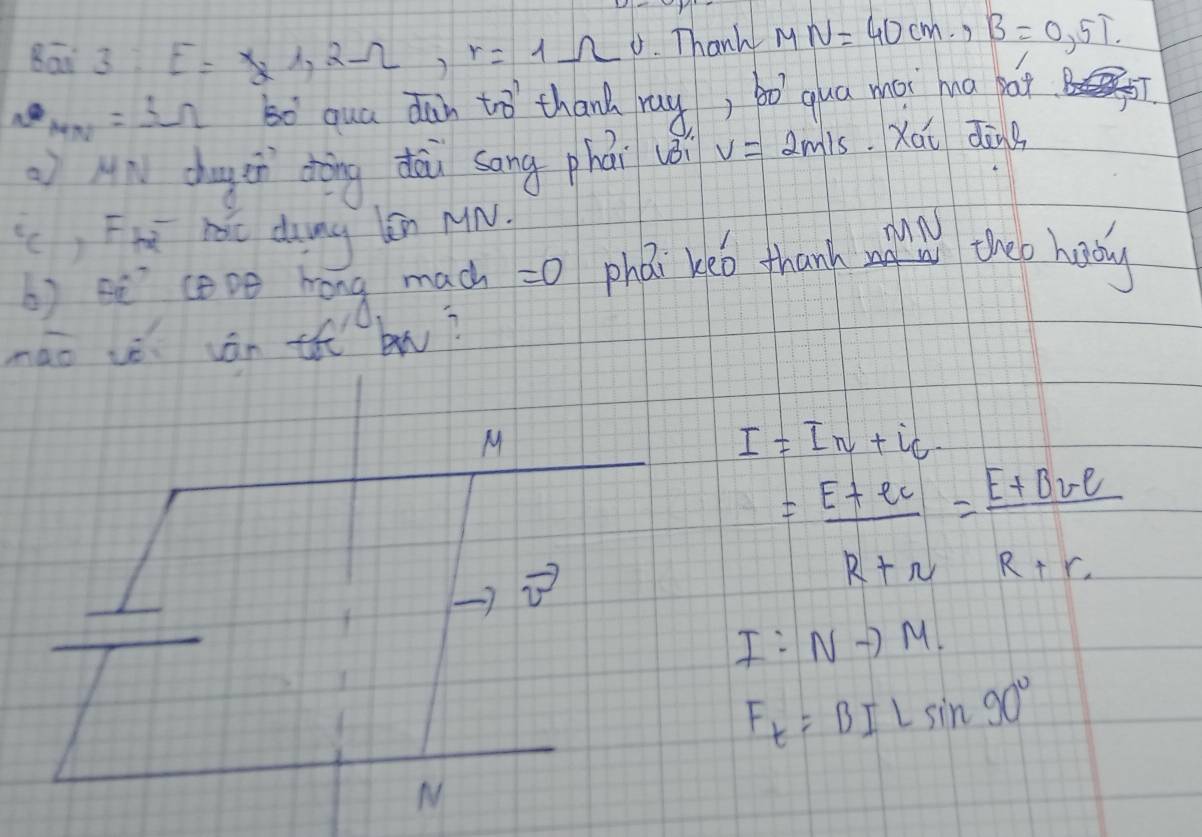 Bài 3: E = 1,2 Ω, r = 1 Ω. Thanh MN = 40 cm., B = 0,5T.
MN = 3Ω bỏ qua điện trở thanh ray, bỏ qua mọi ma sát
a) MN chuyển động đều sang phải với v = 2m/s. Xác định
ic, F từ tác dụng lên MN.
b) Để CĐDĐ trong mạch = 0 phải kéo thanh MN theo hướng
nào với vận tốc bn?
M
I = In + ic.
= E + ec / R + r = E + Bvl / R + r.
→ v⃗
I : N → M.
Ft = BIL sin 90°
N